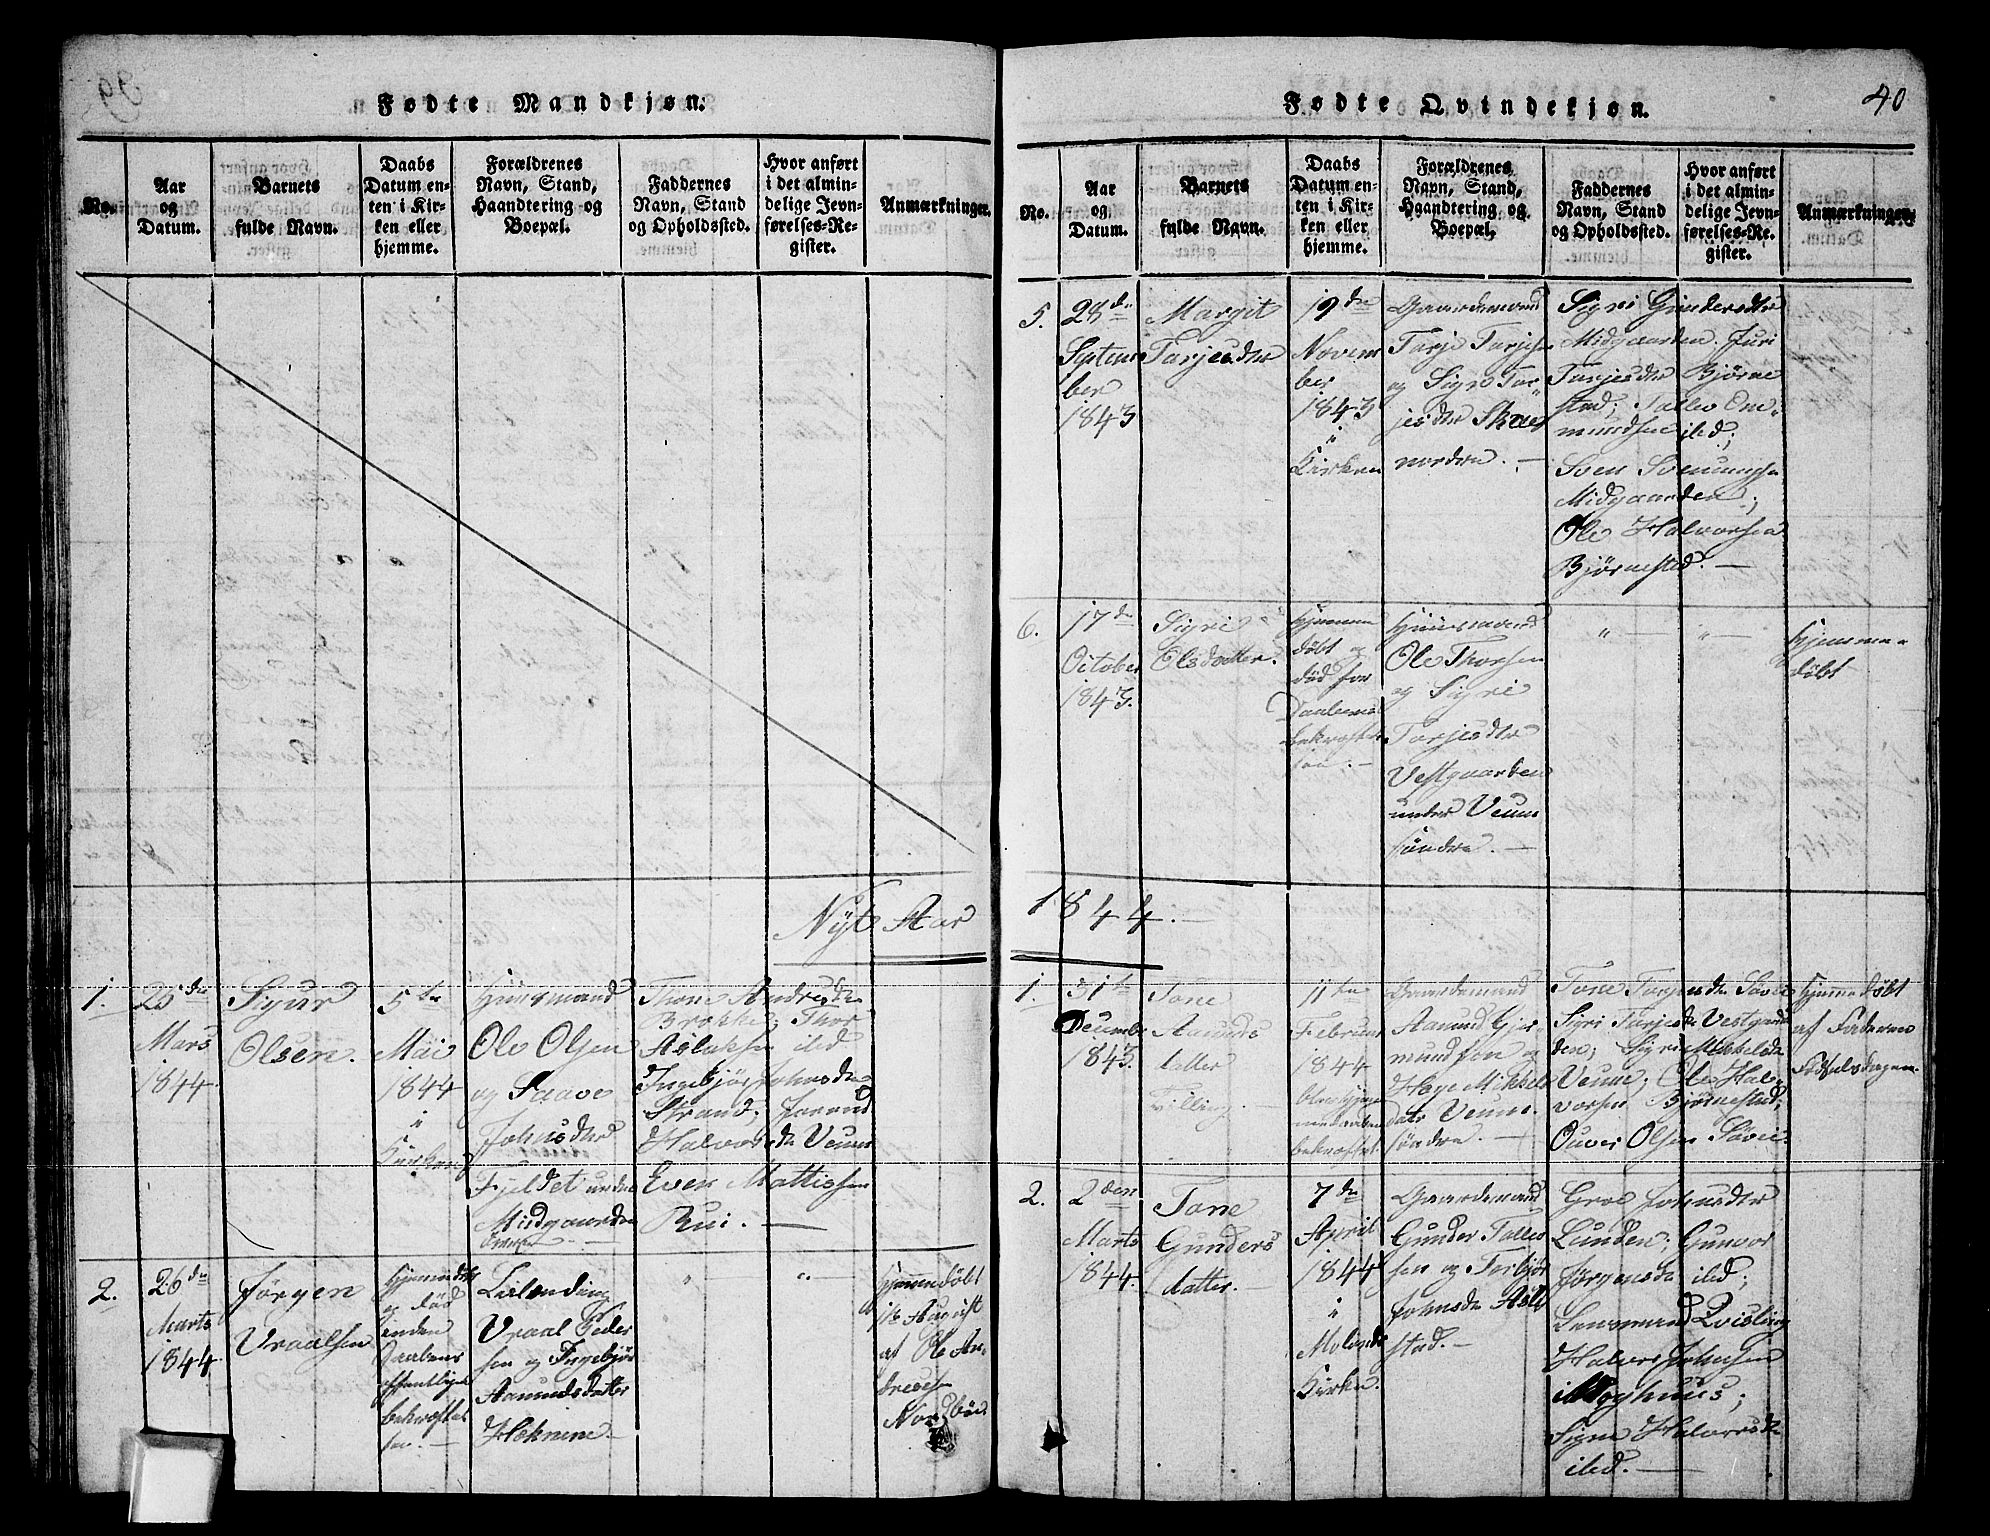 Fødte Mandkjøn.
No.
Aar
og
Datum.
Barnets
fulde Navn.
Daabs
Datum en-
ten i Kir-
ken eller
hjemme.
Forældrenes
Navn, Stand,
Haandtering og
Boepæl.
Faddernes
Navn, Stand
og Opholdssted.
Hvor anført
i det almin-
delige Jevn-
førelses-Re-
gister.
Anmærkninger.
Nyt Aar
1.
25de
Mars
1844.
Sigur
Olsen.
5te
Mai
1844
i
Kirken
Huusmand
Ole Olsen
og Saave
Johnsdter
Fjeldet under
Midgaarden
Thone
Brokke; Thor
Aslaksen ibid
Ingebjør Johnsdr
Strand;
Halvorsdr Veum
Even Mattissen
Rui. —
2.
26de
Marts
1844
Jørgen
Vraalsen
Hjemmedöbt
og död
inden
Daabens
offentlige
bekræftel
sen. —
Vraal Peder
sen og Ingebjør
Aamundsdatter
"
"
Hjemmedöbt
August
af Ole An-
dresen
Nordböe.
40
Fødte Qvindekjøn.
No.
Aar
og
Datum.
Barnets
fulde Navn.
Daabs
Datum en-
ten i Kir-
ken eller
hjemme.
Forældrenes
Navn, Stand,
Haandtering og
Boepæl.
Faddernes
Navn, Stand
og Opholdssted.
Hvor anført
i det almin-
delige Jevn-
førelses-Re-
gister.
Anmærkninger.
5.
28de
Septem
ber
1843
Margit
Tarjesdter
19de
Novem
ber
1843
i
Kirken
Gaardemand
Tarje Tarjesen
og Sigri Tar-
jesdter
nordre. —
Sigri Gundersdter
Midgaarden. Juri
Tarjesdter Bjørne
stad; Tallev Om-
mundsen ibd;
Sven Svenungsen
Midgaarden;
Ole Halvorsen
Bjørnestad. —
6.
17de
October
1843.
Sigri
Olsdatter.
Hjemme
döbt og
död før
Daabens
bekræftel
sen. —
Huusmand
Ole Thorsen
og Sigri
Tarjesdter
Vestgaarden
under Veum
söndre. —
"
"
Hjemme-
döbt
1844. —
1.
31te
Decembr
1843.
Tone
Aamunds
datter
Tvilling. —
11te
Februar
1844
bekræftet
Gaardemand
Aamund Gjer-
mundsen og
Hæge Mikkels
datr Veum
söndre. —
Tone Tarjesdr
Sigri Tarjesdr Vestgaar
den; Sigri Mikkelsdr
Veum; Ole Hal-
vorsen Bjørnestad;
Ouver Olsen
Hjemmedöbt
af Faderen
Födselsdagen.
2.
2den
Marts
1844.
Tone
Gunders
datter.
7de
April
1844
i
Molands
Kirke.
Gaardemand
Gunder Tallev
sen og Torbjør
Johnsdr
stad. —
Groe Johnsdter
Lunden; Gunvor
Jørgensdr ibd;
Lensmand Qvisling
Halvor Johnsen
i Moghuus;
Signe Halvorsdr
ibd. —